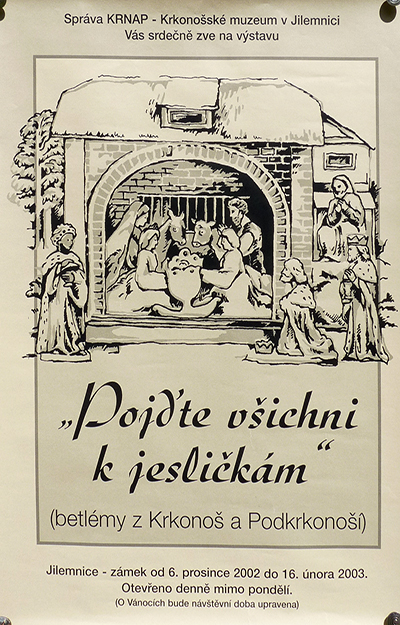 Správa KRNAP - Krkonošské muzeum v Jilemnici
Vás srdečně zve na výstavu
„Pojďte všichni
k jesličkám“
(betlémy z Krkonoš a Podkrkonoší)
Jilemnice - zámek od 6. prosince 2002 do 16. února 2003.
Otevřeno denně mimo pondělí.
(O Vánocích bude návštěvní doba upravena)